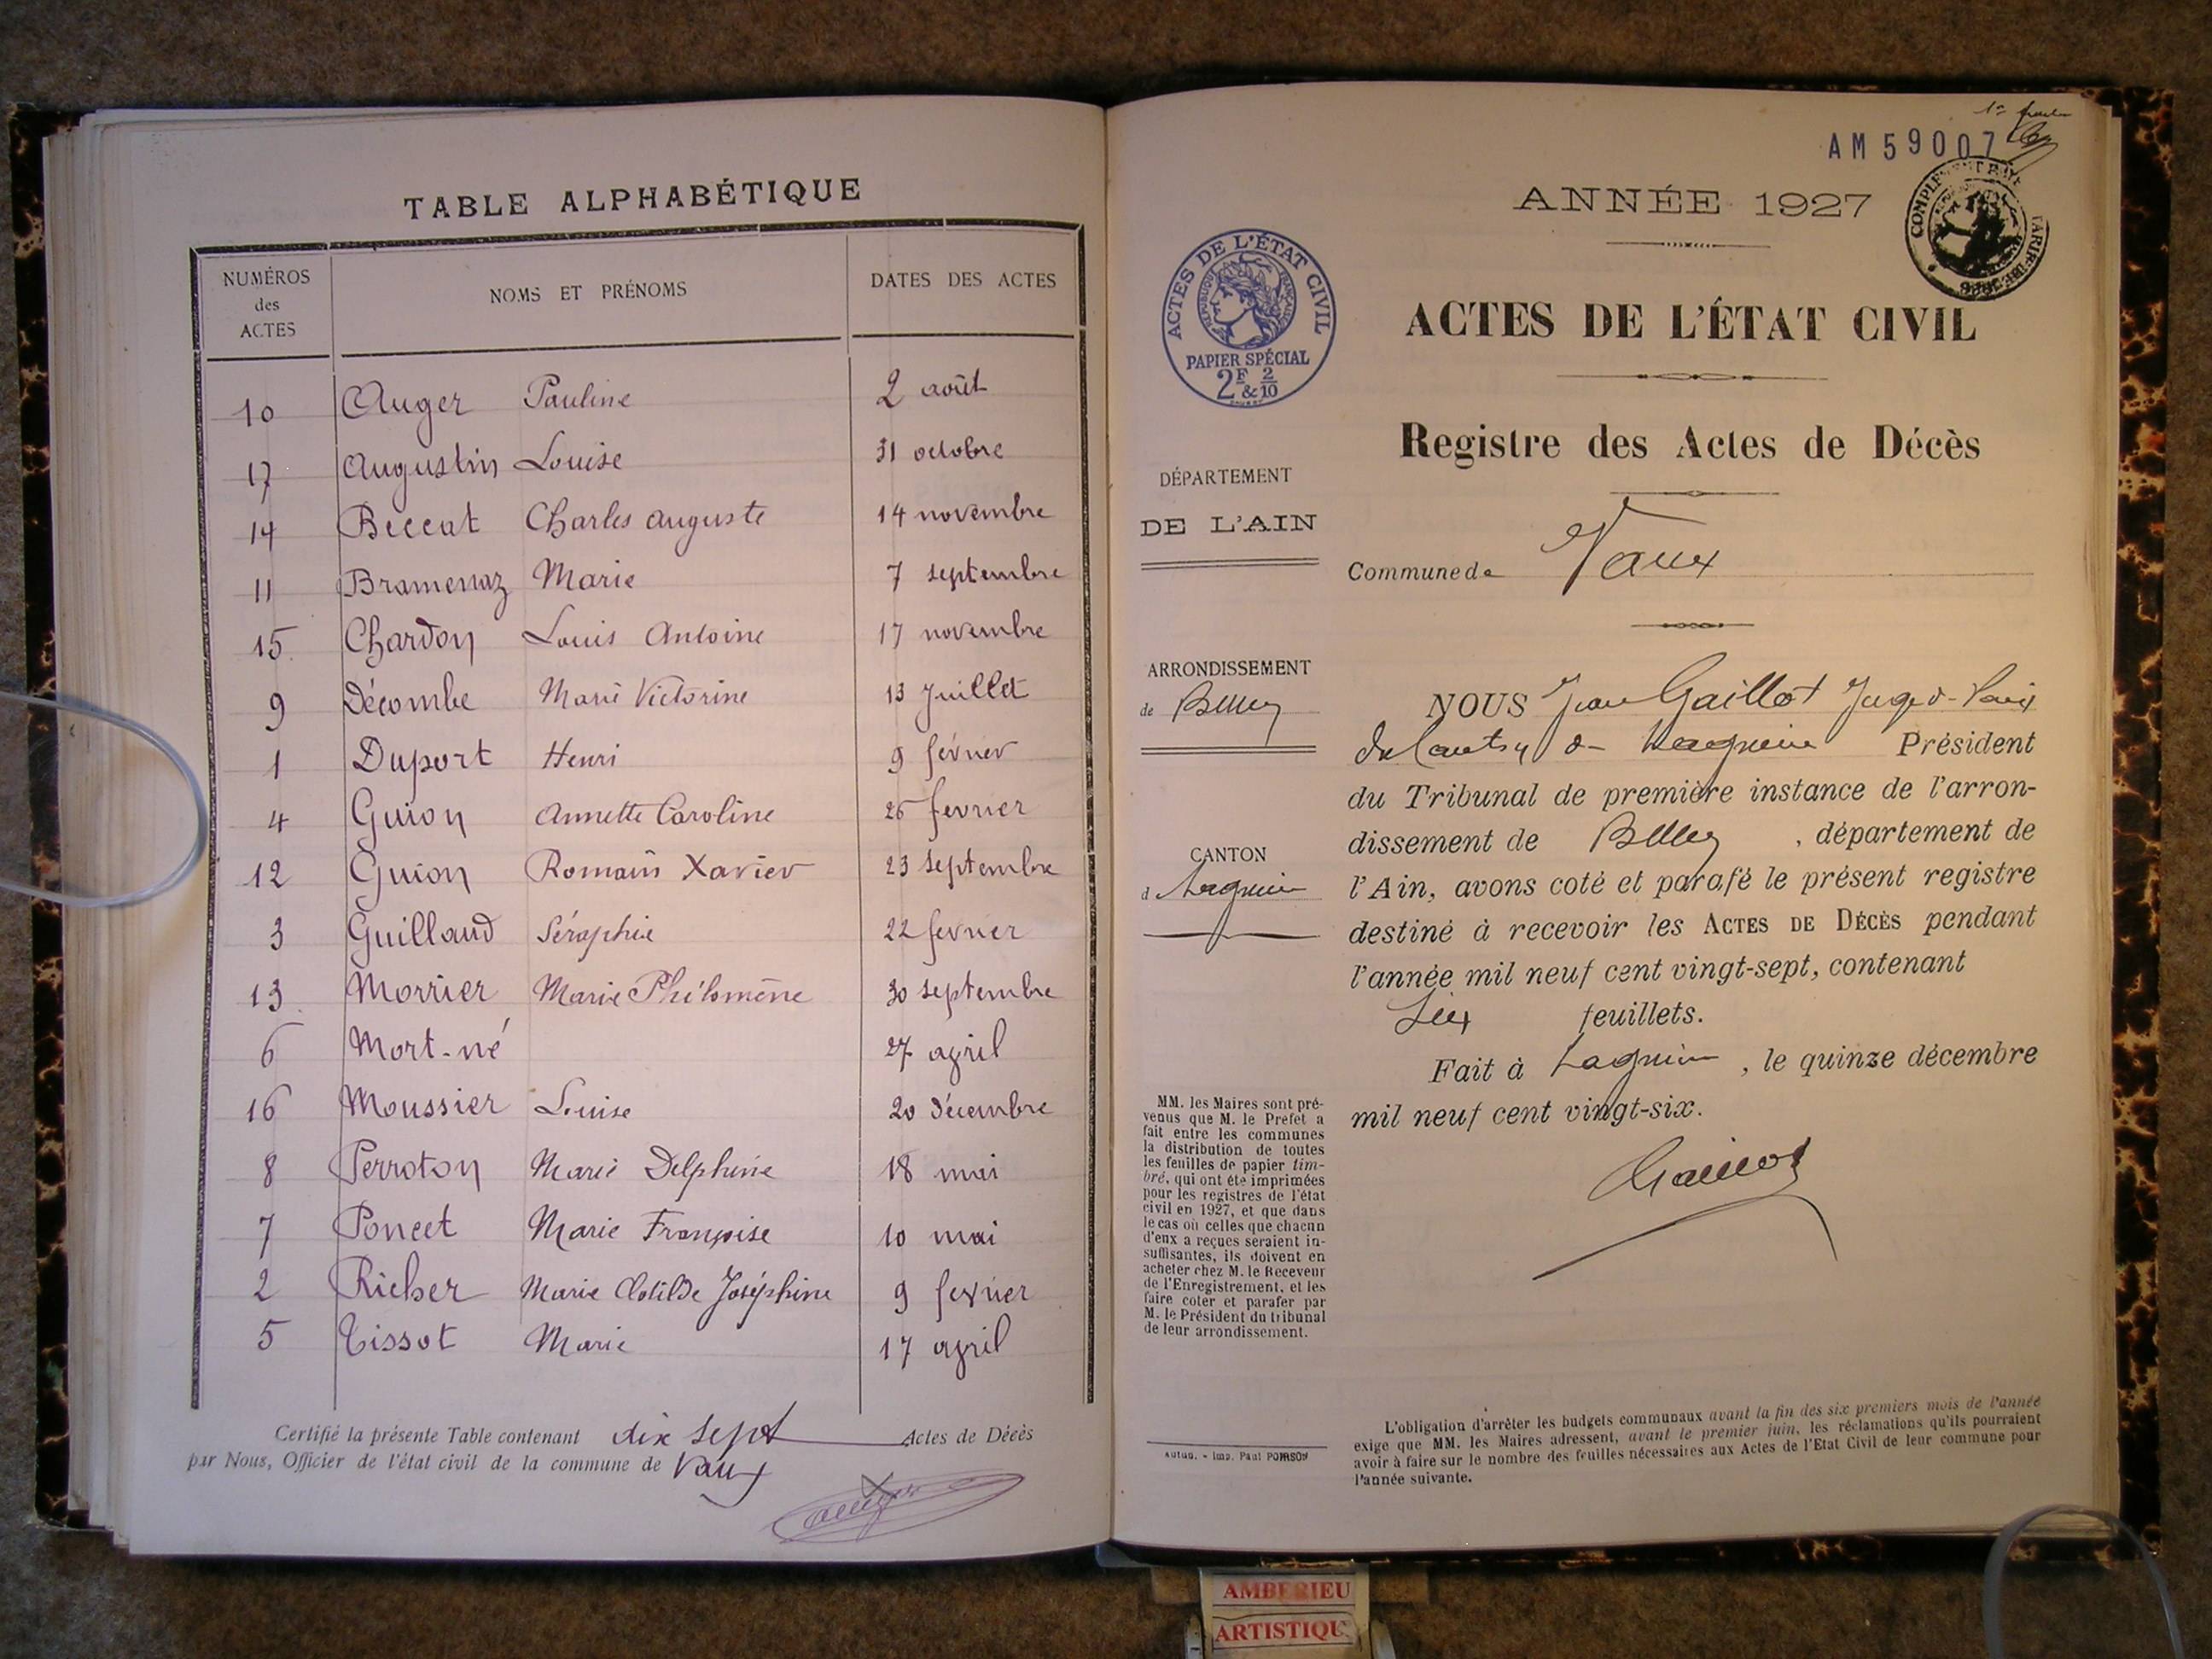 TABLE ALPHABÉTIQUE
NUMÉROS des ACTES NOMS ET PRÉNOMS DATES DES ACTES
10 Auger Pauline 2 août
17 Augustin Louise 31 octobre
14 Beccat Charles Auguste 14 novembre
11 Bramenaz Marie 7 septembre
15. Chardon Louis Antoine 17 novembre
9 Décombe Marie Victorine 13 Juillet
1 Duport Henri 9 février
4 Guion Annette Caroline 26 février
12 Guion Romain Xavier 23 septembre
3 Guilland Séraphie 22 février
13. Morrier Marie Philomène 30 septembre
6 Mort-né 27 april
16 Moussier Louise 20 décembre
8 Perroton Marie Delphine 18 mai
7 Poncet Marie Françoise 10 mai
2 Richer Marie Clotilde Joséphine 9 fevrier
5 Tissot Marie 17 april
Certifié la présente Table contenant dix sept Actes de Décès
par Nous, Officier de l'état civil de la commune de Vaux
AM 59007
ANNÉE 1927
ACTES DE L'ÉTAT CIVIL
RÉPUBLIQUE FRANÇAISE
PAPIER SPÉCIAL
2F & 2/10
ACTES DE L'ÉTAT CIVIL
Registre des Actes de Décès
DÉPARTEMENT
DE L'AIN
Commune de Vaux
ARRONDISSEMENT
de Belley
CANTON
d Lagnieu
NOUS Jean Gaillot Juge de Paix
du Canton de Lagnieu Président
du Tribunal de première instance de l'arron-
dissement de Belley, département de
l'Ain, avons coté et parafé le présent registre
destiné à recevoir les ACTES DE DÉCÈS pendant
l'année mil neuf cent vingt-sept, contenant
Six feuillets.
Fait à Lagnieu, le quinze décembre
mil neuf cent vingt-six.
Gaillot
MM. les Maires sont pré-
venus que M. le Préfet a
fait entre les communes
la distribution de toutes
les feuilles de papier tim-
bré, qui ont été imprimées
pour les registres de l'état
civil en 1927, et que dans
le cas où celles que chacun
d'eux a reçues seraient in-
suffisantes, ils doivent en
acheter chez M. le Receveur
de l'Enregistrement, et les
faire coter et parafer par
M. le Président du tribunal
de leur arrondissement.
Autun. - Imp. Paul POIRSON
L'obligation d'arrêter les budgets communaux avant la fin des six premiers mois de l'année
exige que MM. les Maires adressent, avant le premier juin, les réclamations qu'ils pourraient
avoir à faire sur le nombre des feuilles nécessaires aux Actes de l'Etat Civil de leur commune pour
l'année suivante.
AMBERIEU
ARTISTIQU